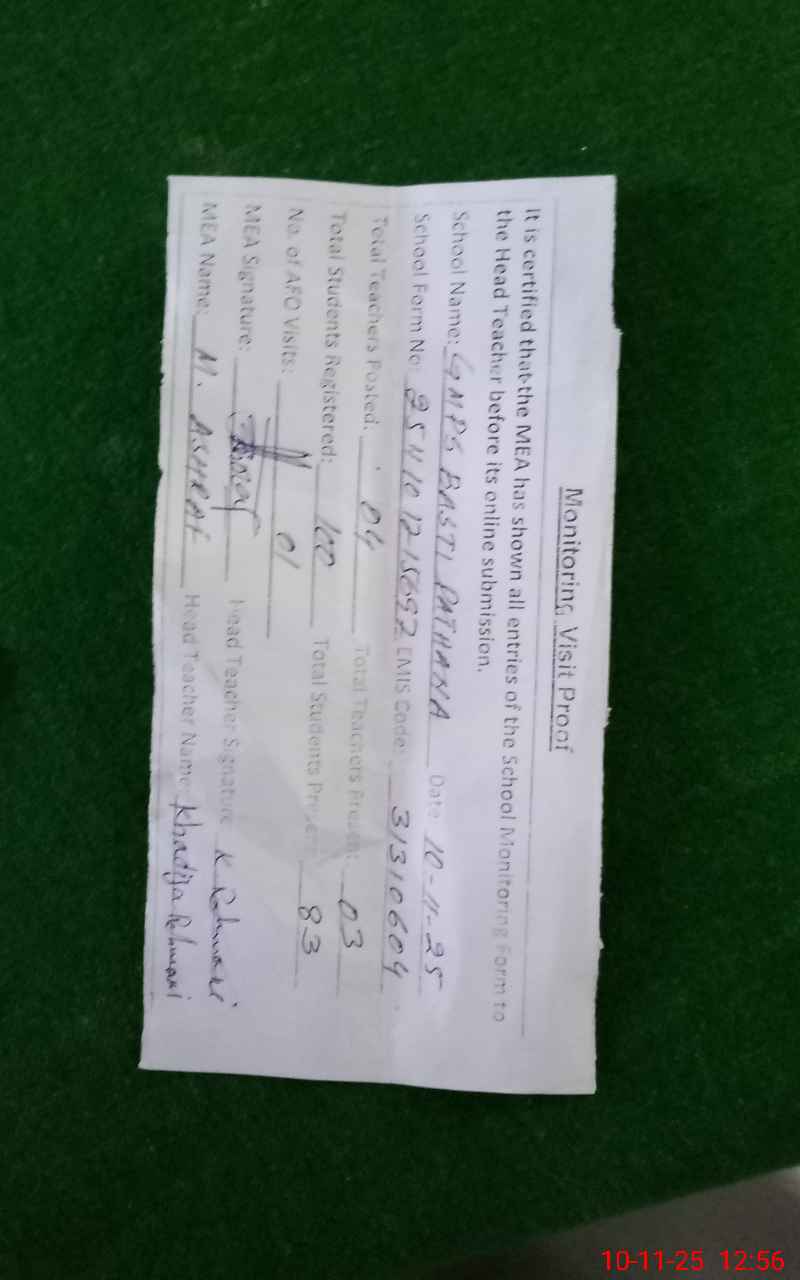 Monitoring Visit Proof
It is certified that the MEA has shown all entries of the School Monitoring Form to
the Head Teacher before its online submission.
School Name: GMPS BASTI PATHANA Date: 10-11-25
School Form No: 25N101215092 EMIS Code: 31310604
Total Teachers Posted: 04 Total Teachers Present: 03
Total Students Registered: 100 Total Students Present: 83
No. of AEO Visits: 01
MEA Signature: Head Teacher Signature K Rehmani
MEA Name: M. ASHRAF Head Teacher Name: Khadija Rehmani
10-11-25 12:56